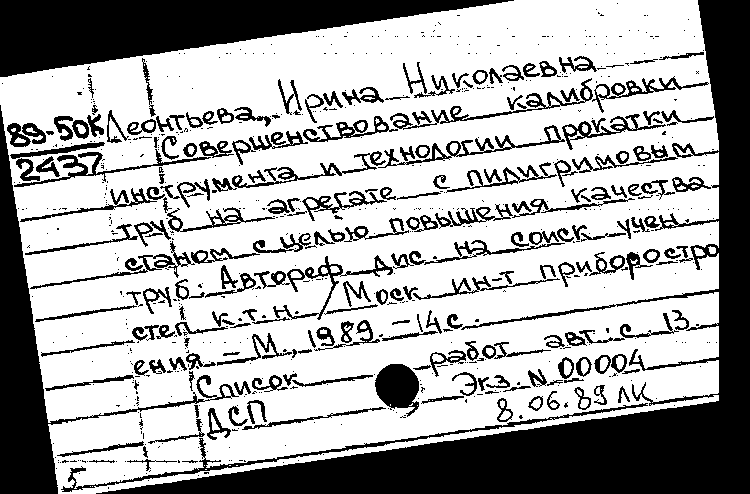 89-50К Леонтьева, Ирина Николаевна
2437 Совершенствование калибровки
инструмента и технологии прокатки
труб на агрегате с пилигримовым
станом с целью повышения качества
труб: Автореф. дис. на соиск. учен.
степ. к.т.н. / Моск. ин-т приборостро
ения. - М., 1989. - 14 с.
Список работ авт.: с. 13.
ДСП Экз. N 00004
8.06.89 ЛК
5